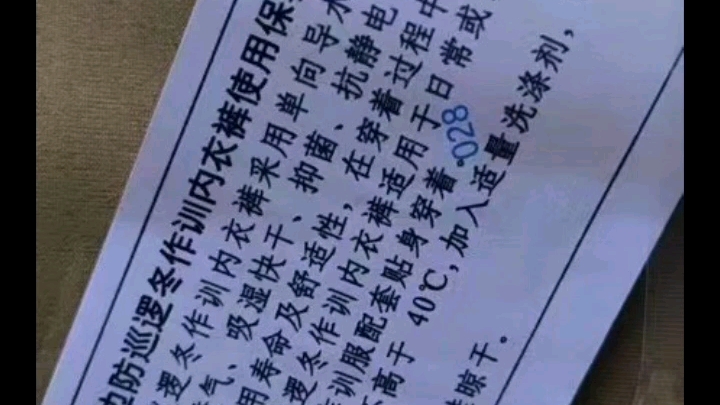 边防巡逻冬作训内衣裤使用保
逻冬作训内衣裤采用单向导术
气、吸湿快干、抑菌、抗静电
用寿命及舒适性，在穿着过程中
逻冬作训内衣裤适用于日常或
训服配套贴身穿着。
028
高于 40℃，加入适量洗涤剂，
晾干。